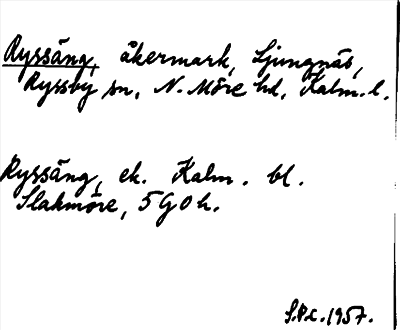 Ryssäng, åkermark, Ljungnäs,
Ryssby sn, N. Möre hd, Kalm. l.
Ryssäng, ek. Kalm. bl.
Slakmöre, 5 G 0 h.
1957.